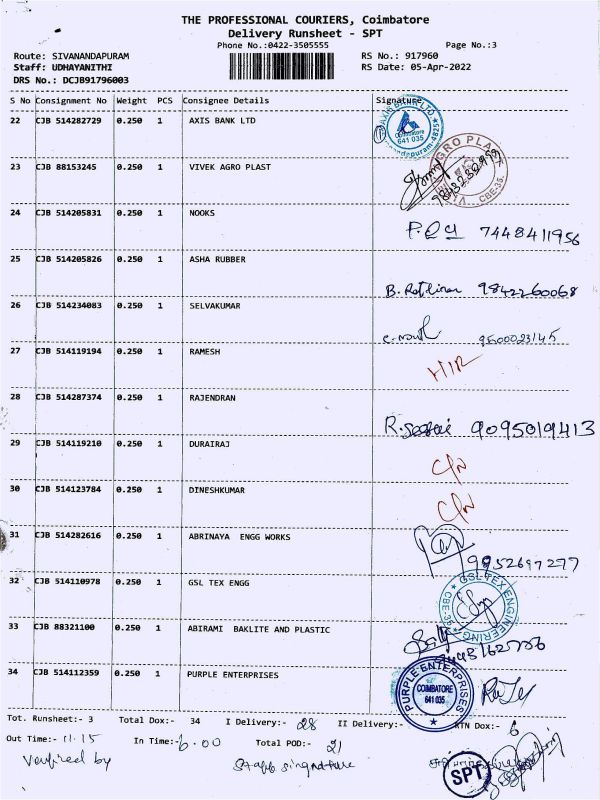 THE PROFESSIONAL COURIERS, Coimbatore
Delivery Runsheet - SPT
Phone No.:0422-3505555 Page No.:3
Route: SIVANANDAPURAM RS No.: 917960
Staff: UDHAYANITHI RS Date: 05-Apr-2022
DRS No.: DCJB91796003
S No Consignment No Weight PCS Consignee Details Signature
22 CJB 514282729 0.250 1 AXIS BANK LTD
AXIS BANK LTD Coimbatore 641 035
23 CJB 88153245 0.250 1 VIVEK AGRO PLAST
AGRO PLAST CBE-35.
24 CJB 514205831 0.250 1 NOOKS
7448411956
25 CJB 514205826 0.250 1 ASHA RUBBER
9842260068
26 CJB 514234083 0.250 1 SELVAKUMAR
9500023145
27 CJB 514119194 0.250 1 RAMESH
28 CJB 514287374 0.250 1 RAJENDRAN
9095019413
29 CJB 514119210 0.250 1 DURAIRAJ
C/N
30 CJB 514123784 0.250 1 DINESHKUMAR
C/N
31 CJB 514282616 0.250 1 ABRINAYA ENGG WORKS
9952697277
32 CJB 514110978 0.250 1 GSL TEX ENGG
GSL TEX ENGINEERING
33 CJB 88321100 0.250 1 ABIRAMI BAKLITE AND PLASTIC
34 CJB 514112359 0.250 1 PURPLE ENTERPRISES
PURPLE ENTERPRISES COIMBATORE 641 035
Tot. Runsheet:- 3 Total Dox:- 34 I Delivery:- 28 II Delivery:- RTN Dox:- 6
Out Time:- 11.15 In Time:- 6.00 Total POD:- 21
Verified by Staff singnature
SPT